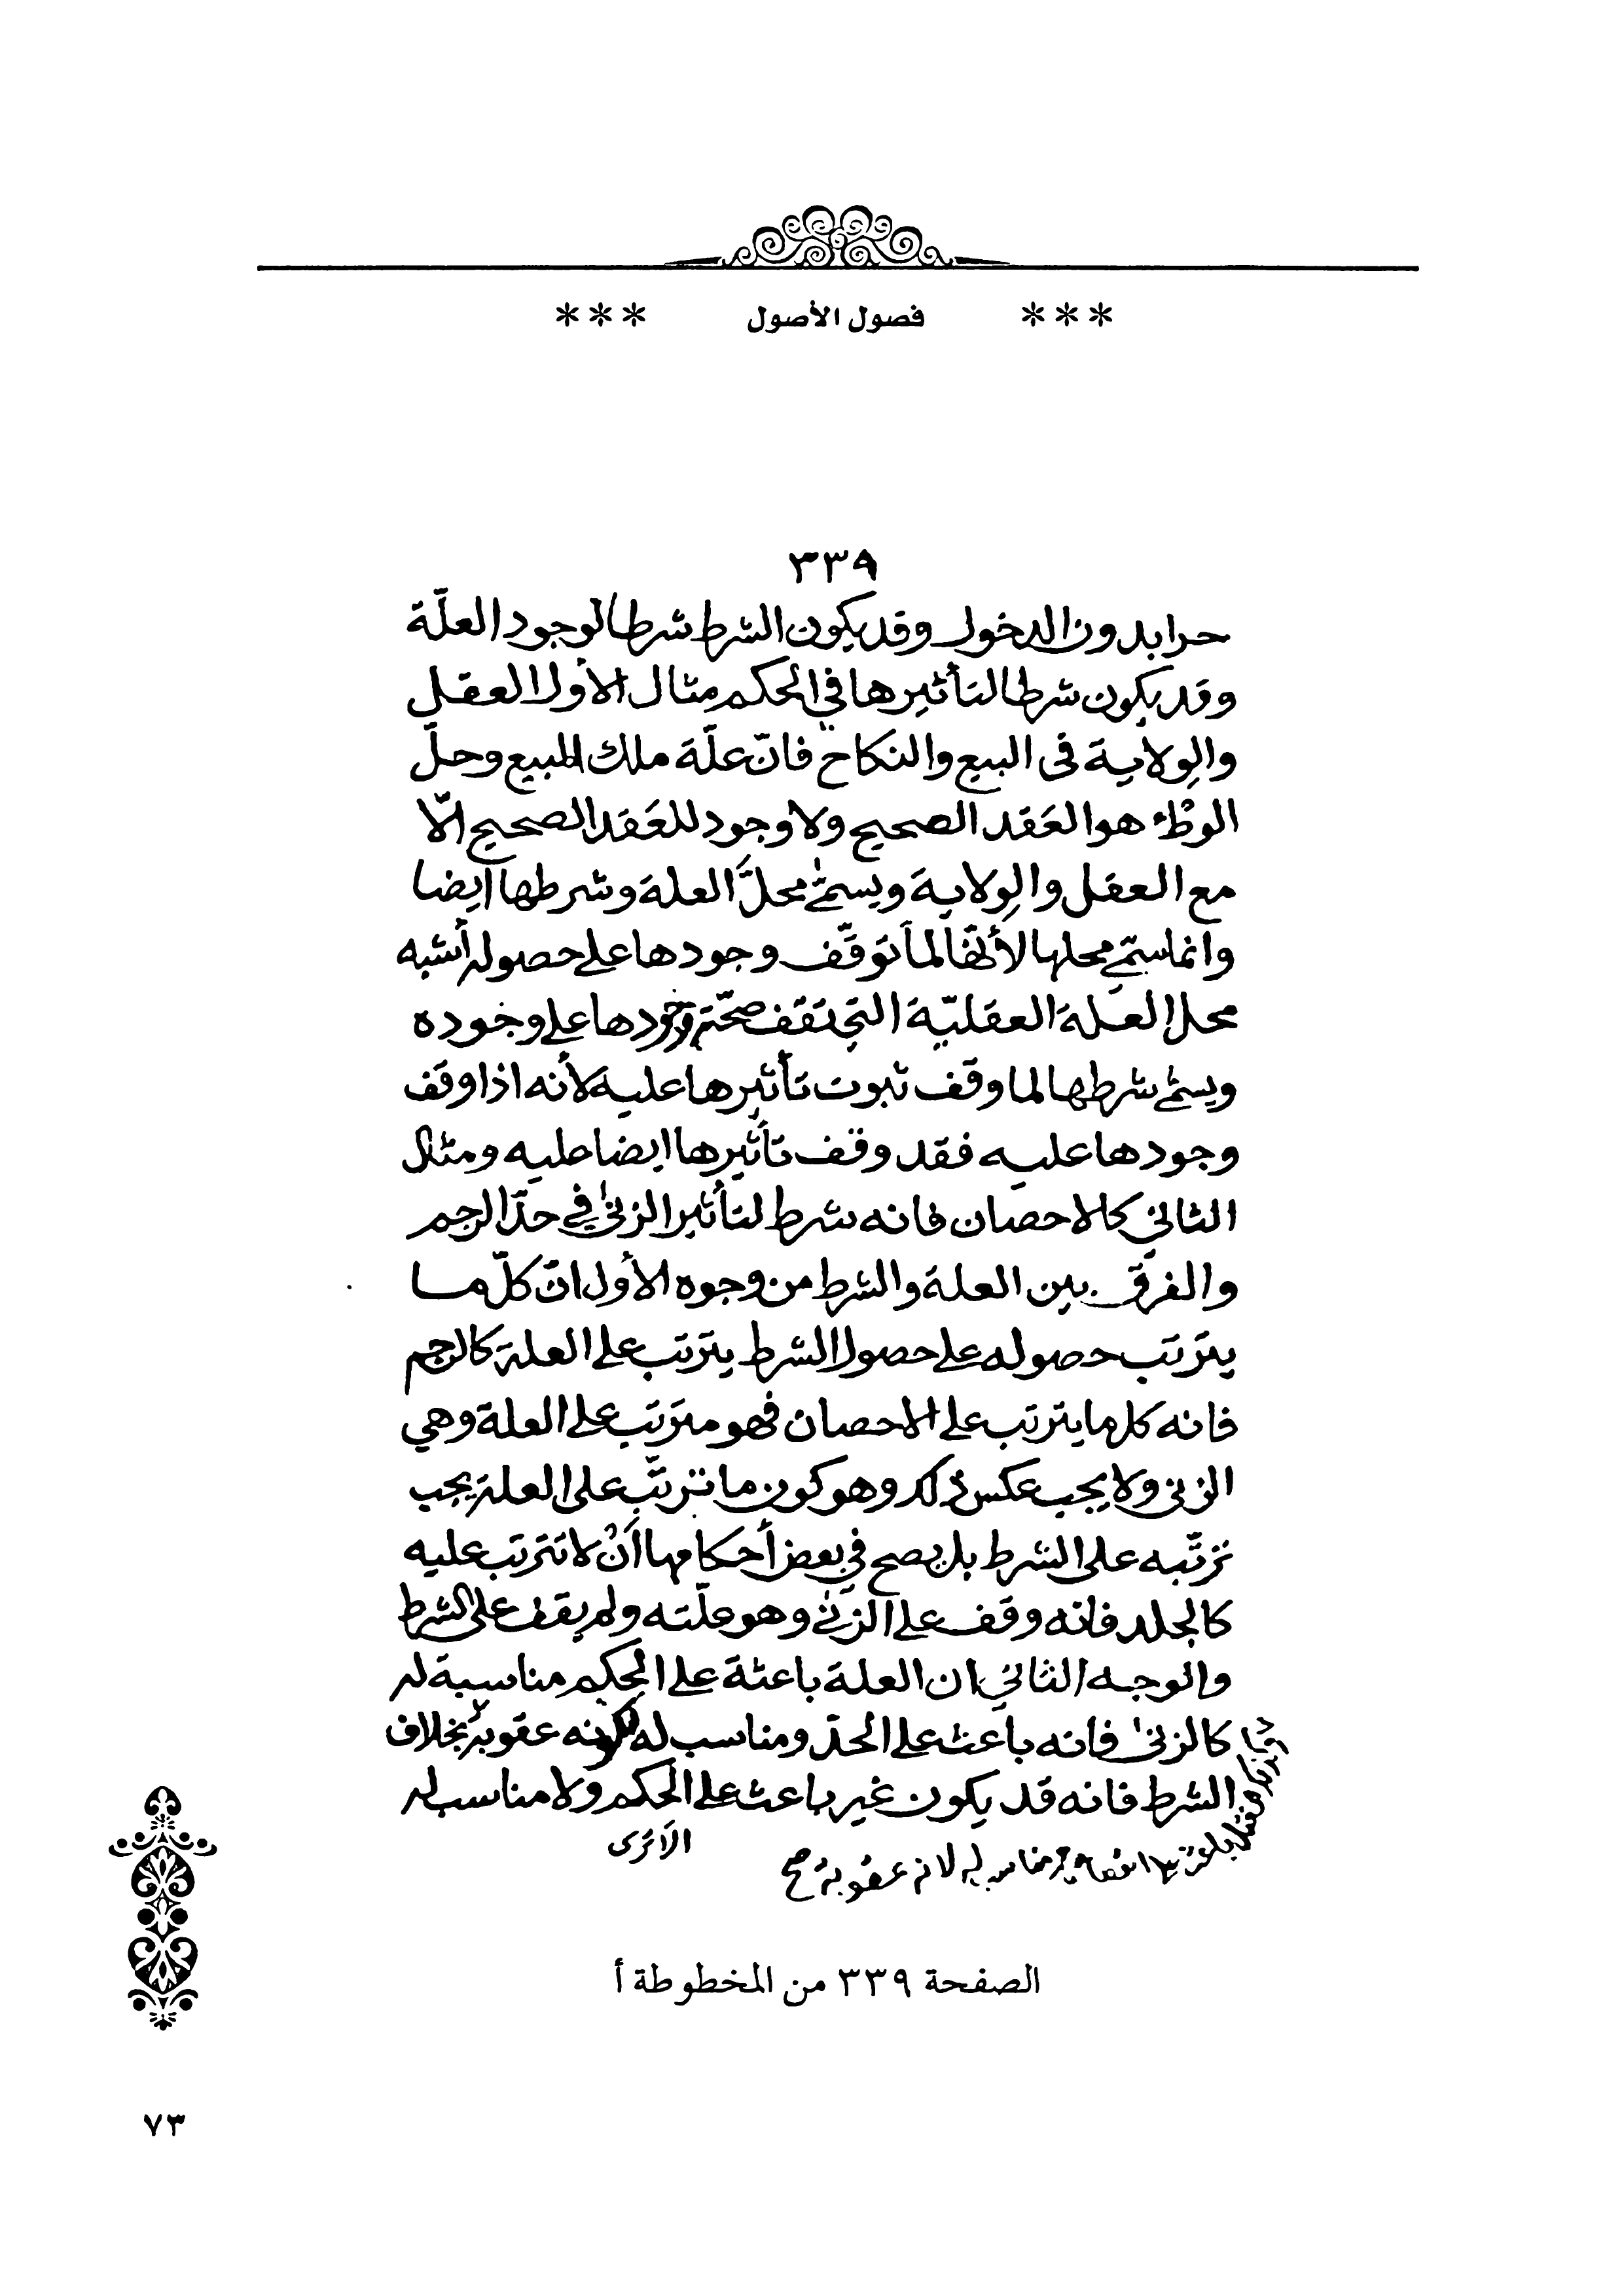 *** فصول الأصول ***
٣٣٩
حرا بدون الدخول وقد يكون الشرط شرطا لوجود العلّة
وقد يكون شرطا لتأثيرها في الحكم مثال الأول العقل
والوِلاية في البيع والنكاح فانّ علّة ملك المبيع وحلّ
الوطْء هو العَقد الصحيح ولا وجود للعَقد الصحيح الّا
مع العقل والوِلاية ويسمّى محلَّ العلة وشرطها ايضا
وانما سمّي محلها لأنّها لما توقّف وجودها على حصوله أشبه
محل العلة العقليّة التي تقف صحّة وجودها على وجوده
ويسمى شرطها لما وقف ثبوت تأثيرها عليه لأنه اذا وقف
وجودها عليه فقد وقف تأثيرها ايضا عليه ومثال
الثاني كالاحصان فانه شرط لتأثير الزنى في حدّ الرجم
والفرق بين العلة والشرط من وجوه الأول انّ كلّ ما
يترتب حصوله على حصول الشرط يترتب على العلة كالرجم
فانه كلما يترتب على الاحصان فهو مترتب على العلة وهي
الزنى ولا يجب عكس ذلك وهو كون ما ترتّب على العلة يجب
ترتّبه على الشرط بل يصح في بعض أحكامها أنْ لا تترتب عليه
كالجلد فانه وقف على الزنى وهو علّته ولم يقف على الشرط
والوجه الثاني ان العلة باعثة على الحكم مناسبة له
كالزنى فانه باعث على الحدّ ومناسب له لكونه عقوبة بخلاف
الشرط فانه قد يكون غير باعث على الحكم ولا مناسب له
الا ترى
مناسب له لانه عقوبة صح
الصفحة ٣٣٩ من المخطوطة أ
٧٣